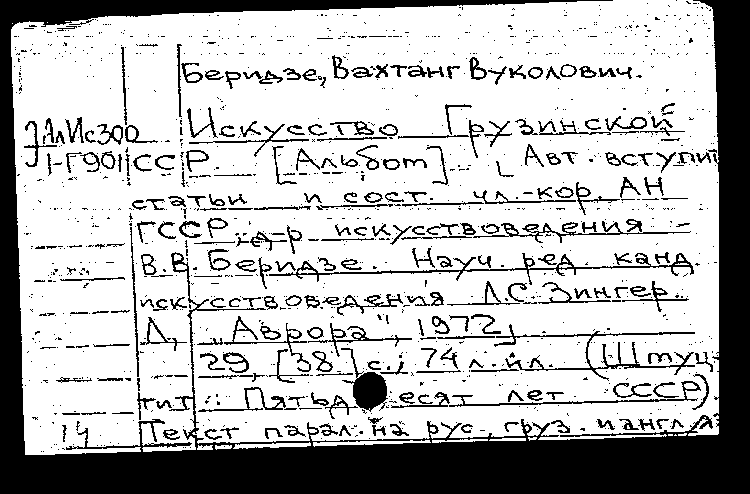 Беридзе, Вахтанг Вуколович.
ЈАлИс300 Искусство Грузинской
1-Г901 ССР. [Альбом] Авт. вступит
статьи и сост. чл.-кор. АН
ГССР, д-р искусствоведения
В.В. Беридзе. Науч. ред. канд.
искусствоведения Л.С. Зингер.
Л, „Аврора“, 1972,
29, [38] с.; 74 л. ил. (Штуц-
тит.: Пятьдесят лет СССР).
14 Текст парал. на рус., груз. и англ яз